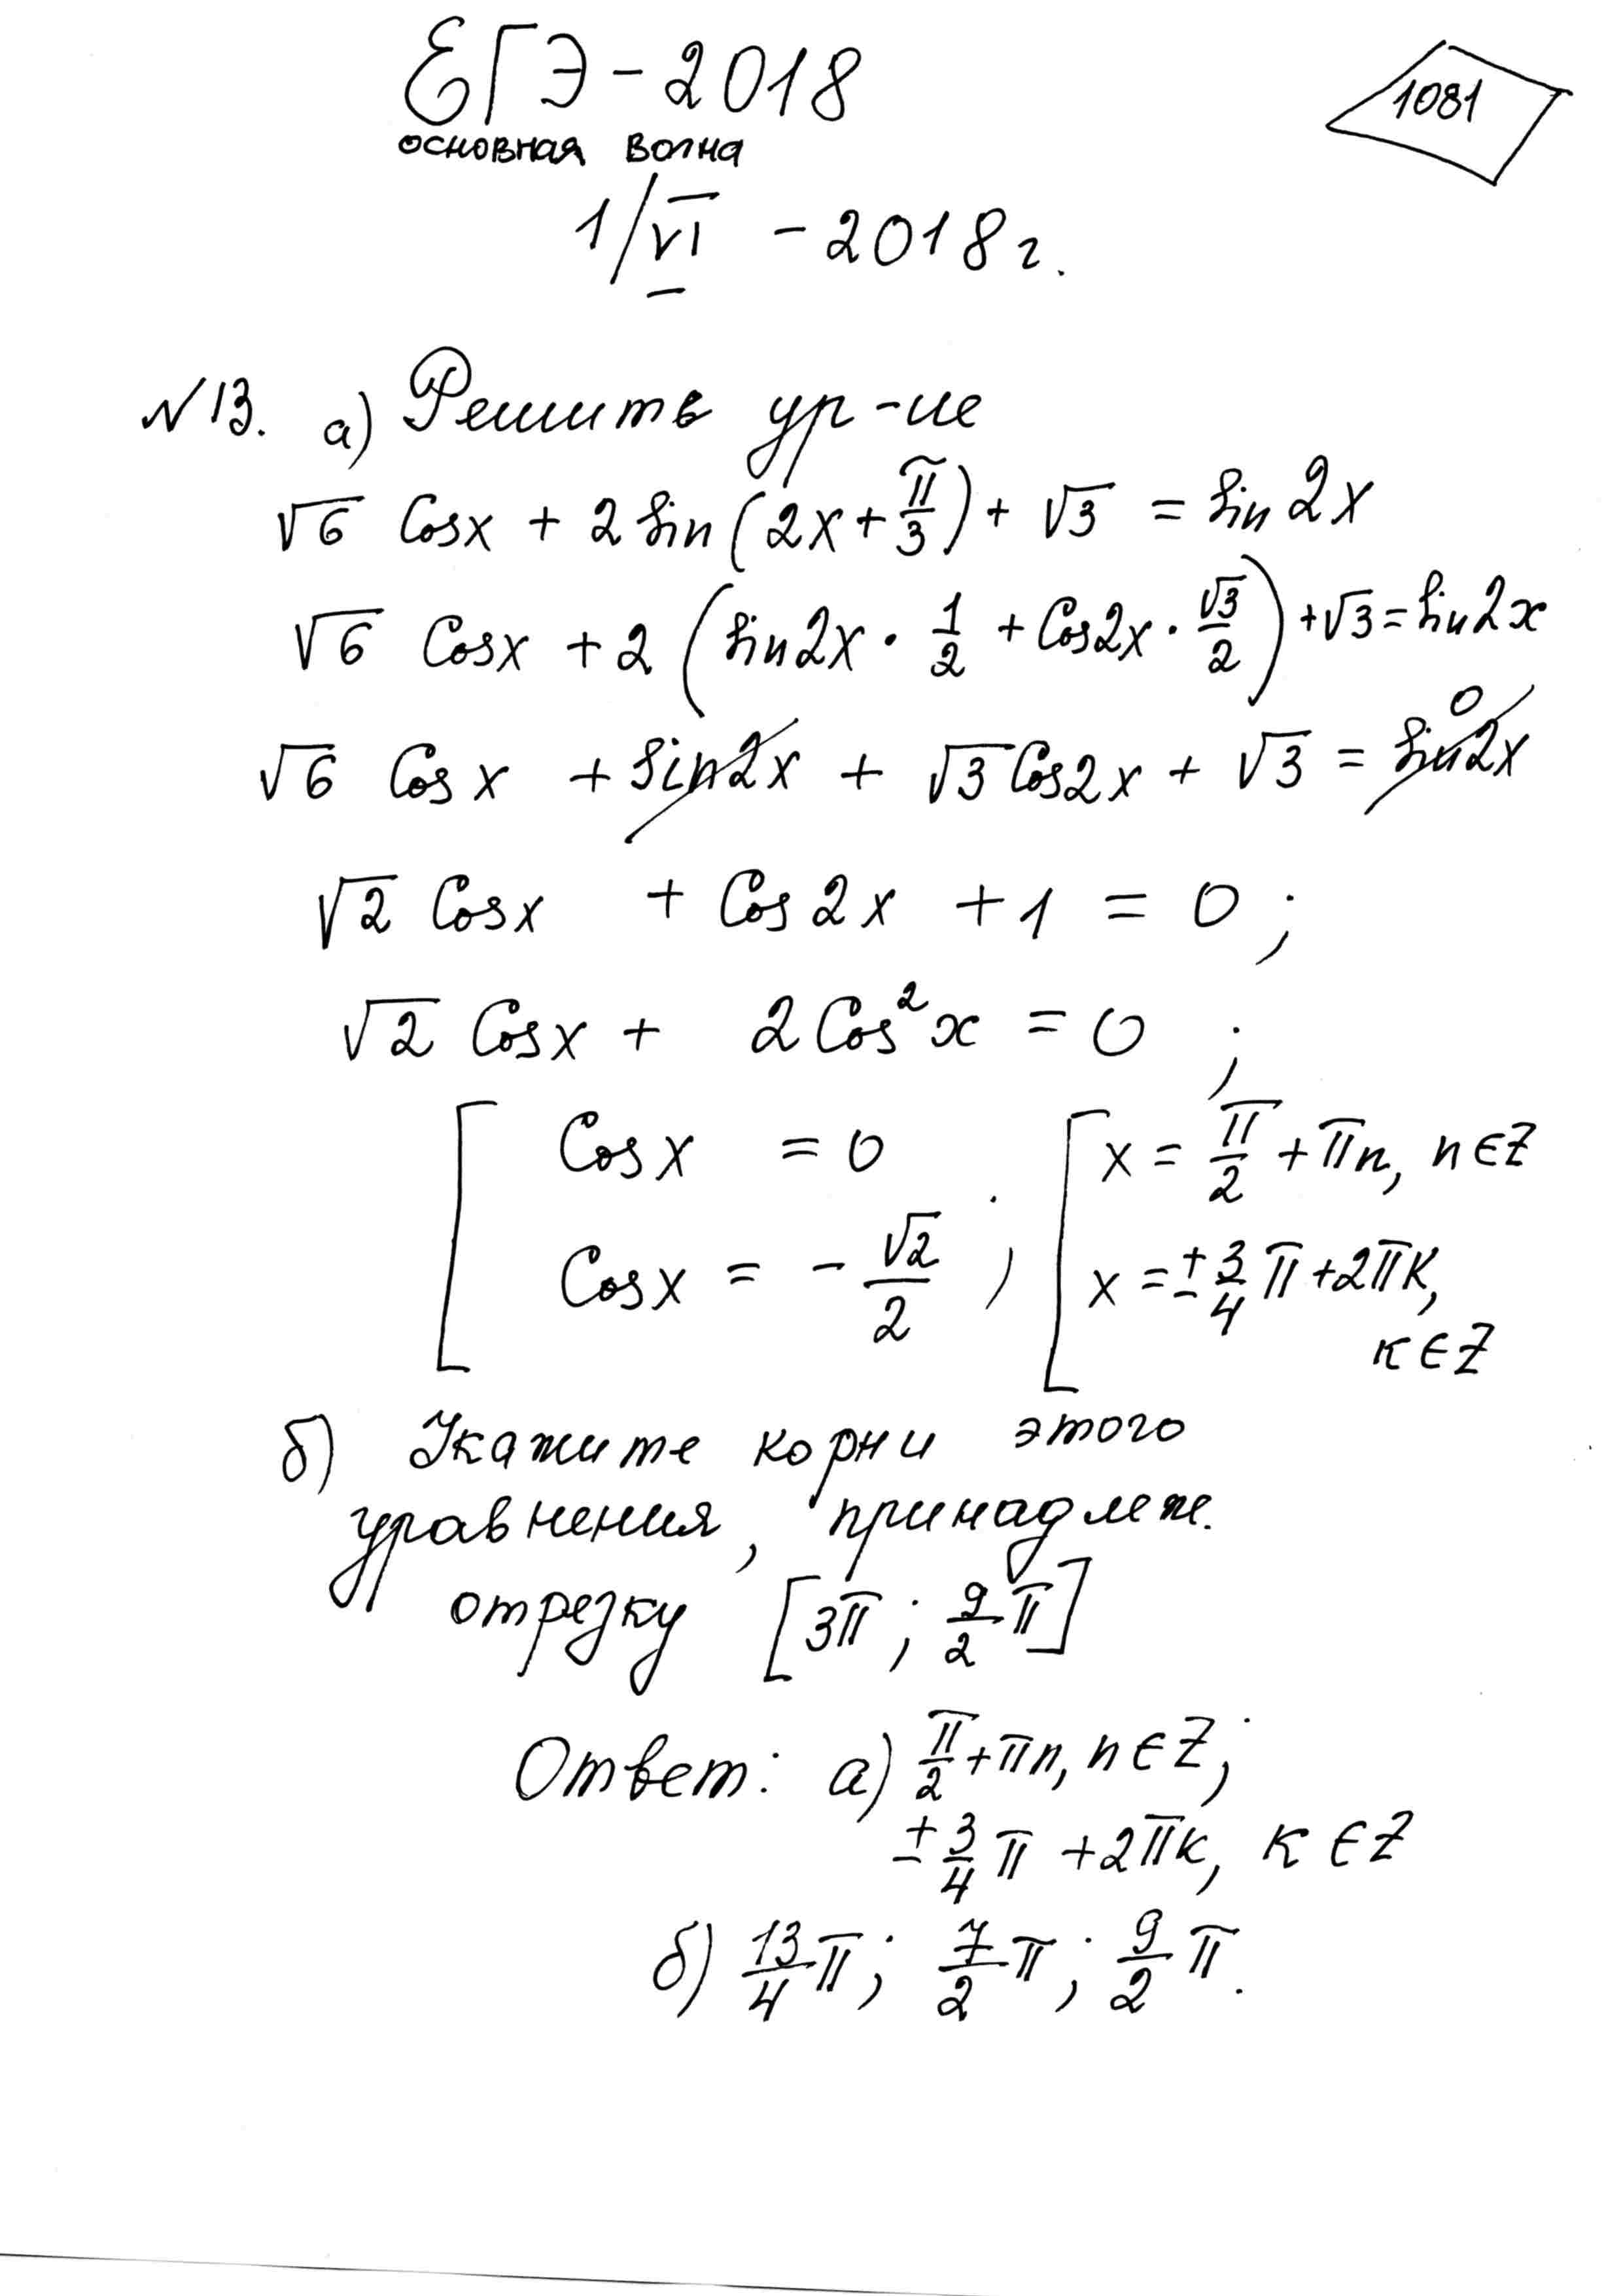 ЕГЭ-2018
1081
основная волна
1/VI -2018г.
№13. а) Решить ур-ие
√6 Cosx + 2 sin(2x + π/3) + √3 = sin 2x
√6 Cosx + 2 (sin2x · 1/2 + Cos2x · √3/2) + √3 = sin2x
√6 Cosx + sin2x + √3 Cos2x + √3 = sin2x 0
√2 Cosx + Cos2x + 1 = 0 ;
√2 Cosx + 2Cos²x = 0 ;
[ Cosx = 0 [ x = π/2 + πn, n∈Z
Cosx = - √2/2 ; x = ± 3/4 π + 2πk,
k∈Z
б) Укажите корни этого
уравнения, принадлеж.
отрезку [3π ; 9/2 π]
Ответ: а) π/2 + πn, n∈Z;
± 3/4 π + 2πk, k∈Z
б) 13/4 π; 7/2 π; 9/2 π.